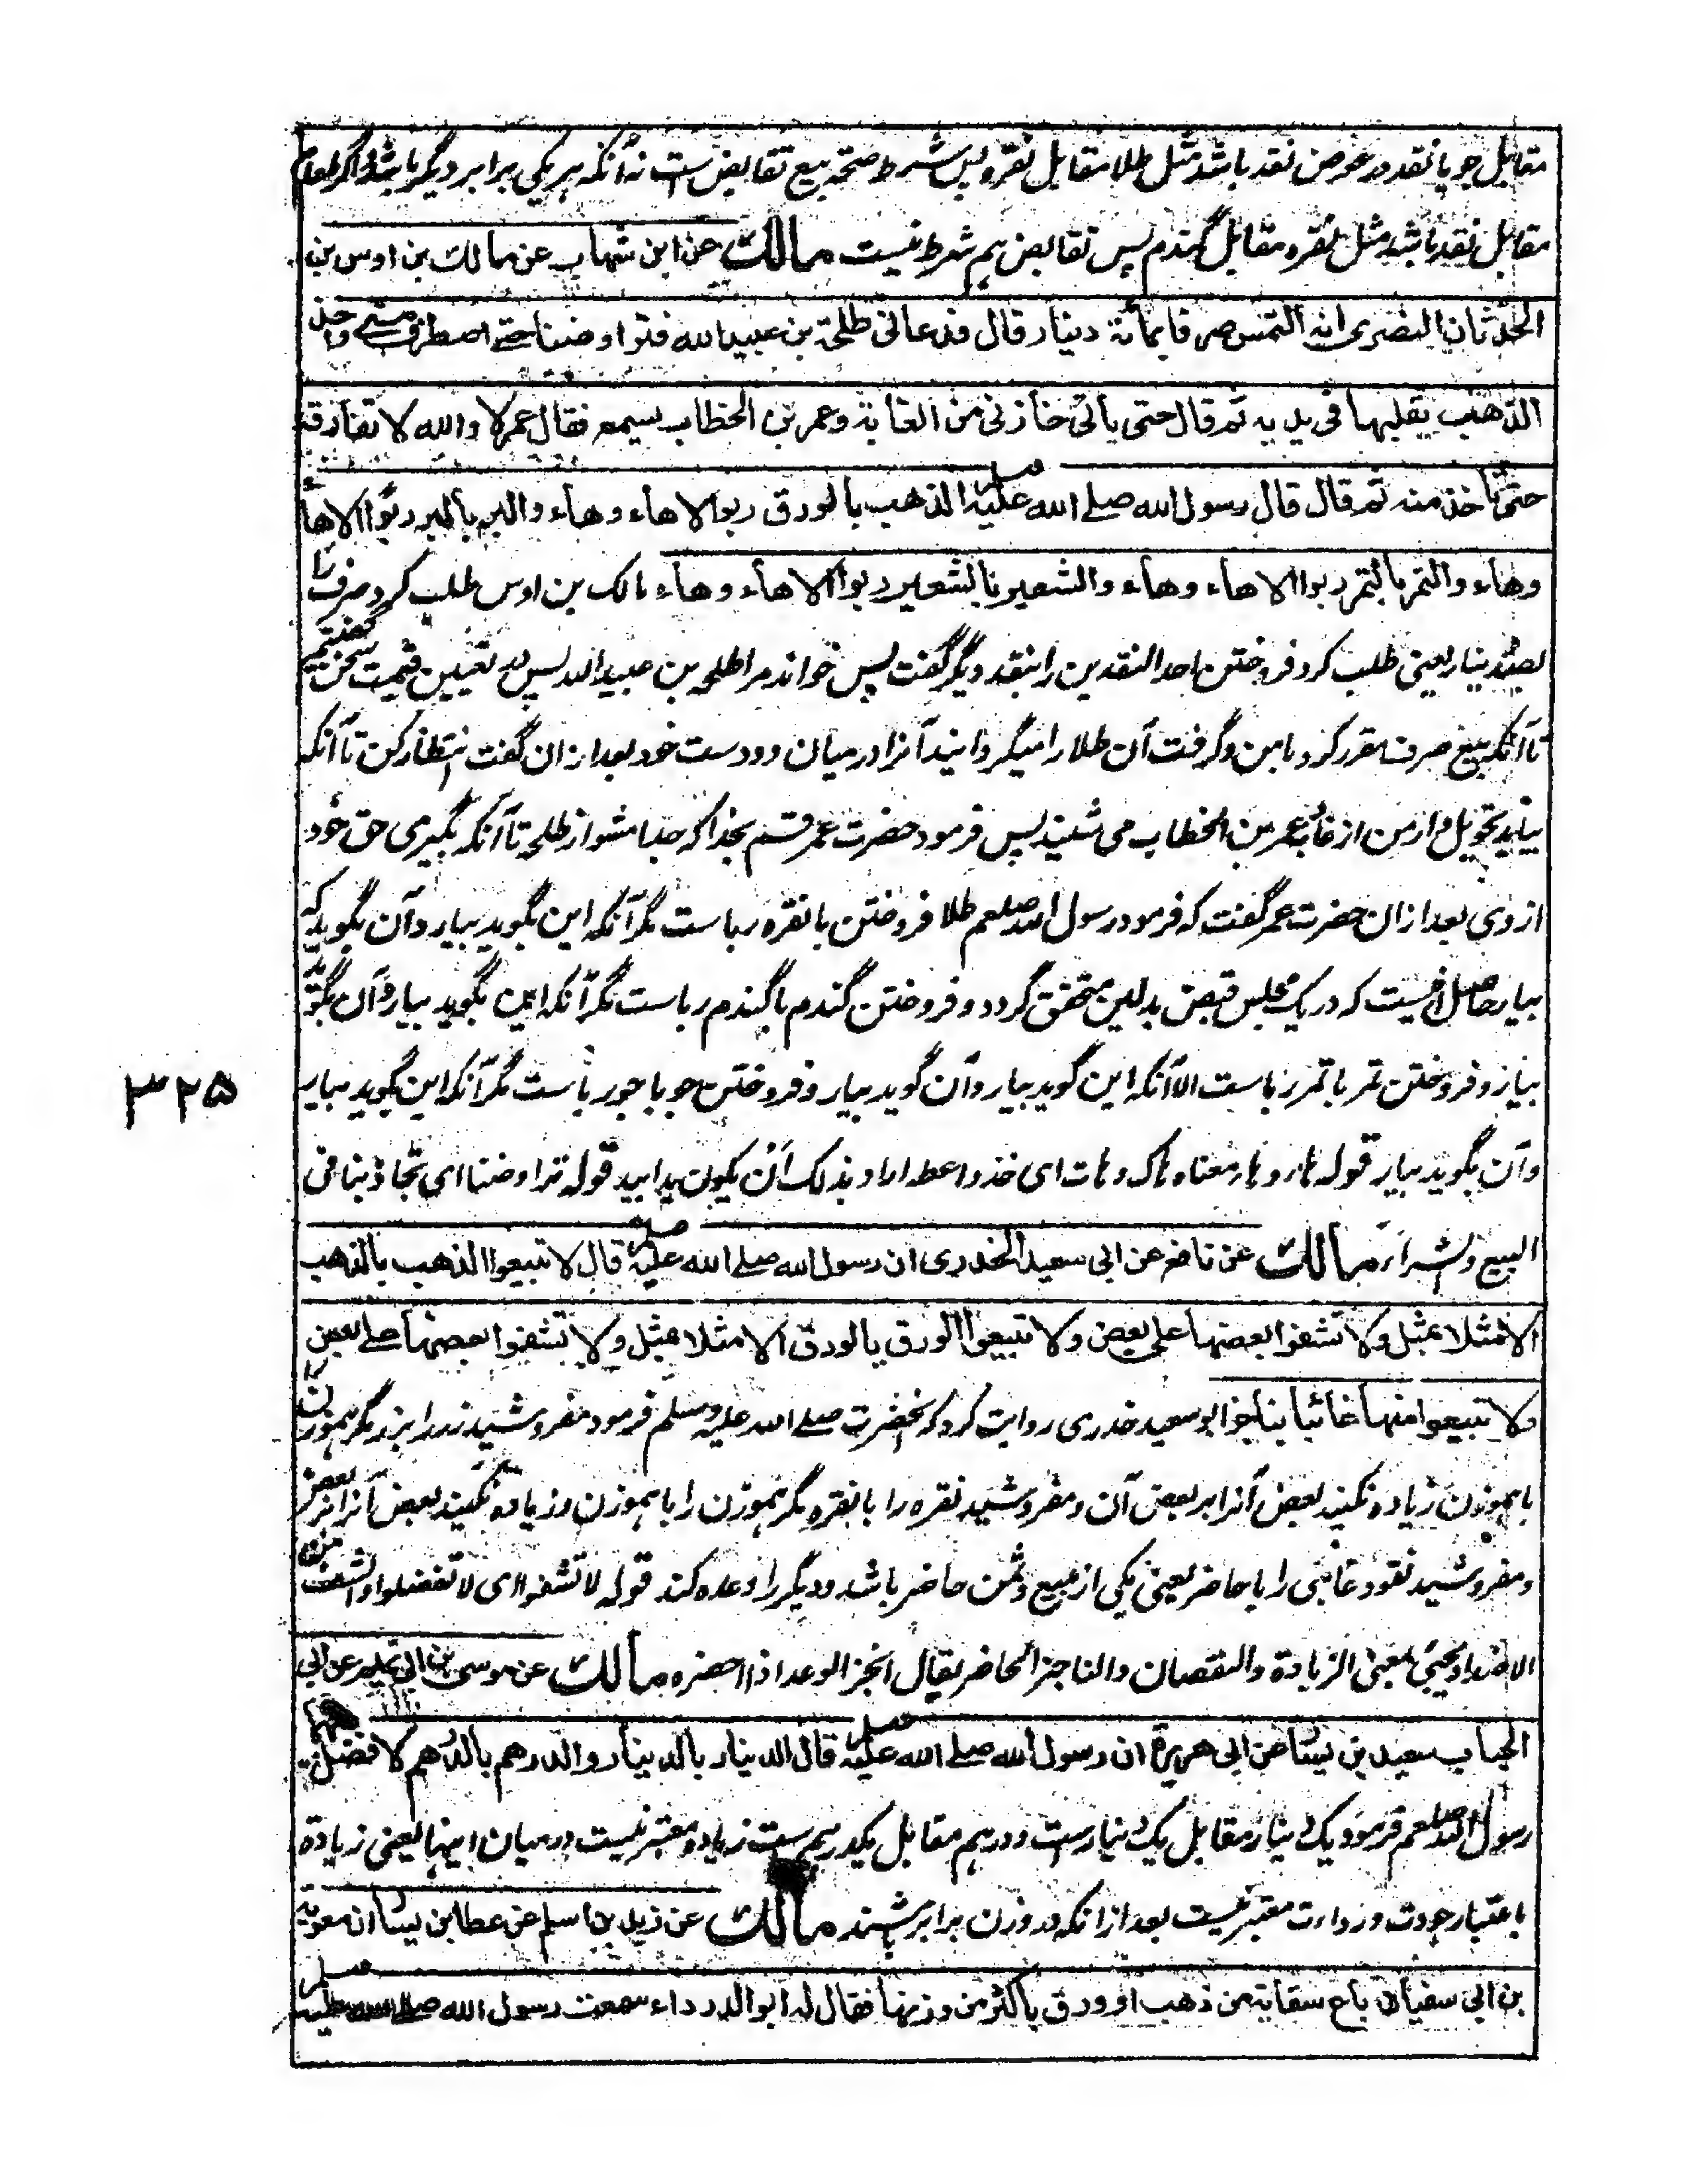 مقابل جو یا نقد در عوض نقد باشد مثل طلا مقابل نقره پس شرط صحة بیع تقابض ست نه آنکه هر یکی برابر دیگر باشد و اگر طعام
مقابل نقد باشد مثل نقره مقابل گندم پس تقابض هم شرط نیست مالك عن ابن شهاب عن مالك بن اوس بن
الحدثان النصرى انه التمس صرفا بمائة دينار قال فدعانى طلحة بن عبيد الله فتراوضنا حتے اصطرف منے واخذ
الذهب يقلبها فى يديه ثم قال حتى يأتى خازنى من الغابة وعمر بن الخطاب يسمع فقال عمر لا والله لا تفارقه
حتى تأخذ منه ثم قال قال رسول الله صلے الله عليه وسلم الذهب بالورق ربوا الا هاء وهاء والبر بالبر ربوا الا هاء
وهاء والتمر بالتمر ربوا الا هاء وهاء والشعير بالشعير ربوا الا هاء وهاء مالک بن اوس طلب کرد صرف را
بصد دینار یعنی طلب کرد فروختن احد النقدین را بنقد دیگر گفت پس خواند مرا طلحه بن عبید الله پس در تعیین قیمت سخن گفتیم
تا آنکه بیع صرف مقرر کرد با من و گرفت آن طلا را میگردانید آنرا در میان دو دست خود بعد از ان گفت انتظار کن تا آنکه
بیاید تحویل دار من از غابه و عمر بن الخطاب می شنید پس فرمود حضرت عمر قسم بخدا که جدا مشو از طلحه تا آنکه بگیری حق خود
از وی بعد از ان حضرت عمر گفت که فرمود رسول الله صلعم طلا فروختن با نقره رباست مگر آنکه این بگوید بیار و آن بگوید که
بیار حاصل آنست که در یک مجلس قبض بدلین متحقق گردد و فروختن گندم با گندم رباست مگر آنکه این بگوید بیار و آن بگوید
بیار و فروختن تمر با تمر رباست الا آنکه این گوید بیار و آن گوید بیار و فروختن جو با جو رباست مگر آنکه این بگوید بیار
و آن بگوید بیار قوله هاء و هاء معناه هاک و هات ای خذ و اعط اراد بذلک ان یکون یدا بید قوله تراوضنا ای تجاذبنا فی
البیع والشراء مالك عن نافع عن ابى سعيد الخدرى ان رسول الله صلے الله عليه وسلم قال لا تبيعوا الذهب بالذهب
الا مثلا بمثل ولا تشفوا بعضها على بعض ولا تبيعوا الورق بالورق الا مثلا بمثل ولا تشفوا بعضها علے بعض
ولا تبيعوا منها غائبا بناجز ابو سعید خدری روایت کرد که آنحضرت صلے الله علیه وسلم فرمود مفروشید زر را بزر مگر هموزن را
با هموزن و زیاده نکنید بعض آنرا بر بعض آن و مفروشید نقره را با نقره مگر هموزن را با هموزن و زیاده نکنید بعض آنرا بر بعض
و مفروشید نقود غائبی را با حاضر یعنی یکی از مبیع و ثمن حاضر باشد و دیگر را وعده کند قوله لا تشفوا ای لا تفضلوا والشف من
الاضداد یجیئ بمعنی الزیادة والنقصان والناجز الحاضر یقال انجز الوعد اذا احضره مالك عن موسى بن ابى تميم عن ابى
الحباب سعيد بن يسار عن ابى هريرة ان رسول الله صلے الله عليه وسلم قال الدينار بالدينار والدرهم بالدرهم لا فضل بينهما
رسول الله صلعم فرمود یک دینار مقابل یک دینار ست و درهم مقابل یکدرهم ست زیاده معتبر نیست در میان اینها یعنی زیادة
باعتبار جودت و رداءت معتبر نیست بعد از انکه در وزن برابر باشند مالك عن زيد بن اسلم عن عطا بن يسار ان معوية
بن ابى سفيان باع سقاية من ذهب او ورق باكثر من وزنها فقال له ابو الدرداء سمعت رسول الله صلے الله عليه وسلم
۳۲۵